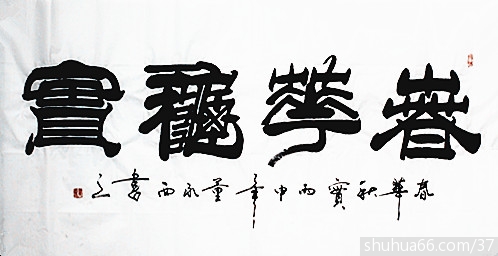 春華秋實
春華秋實丙申年董永西書之
shuhua66.com/37